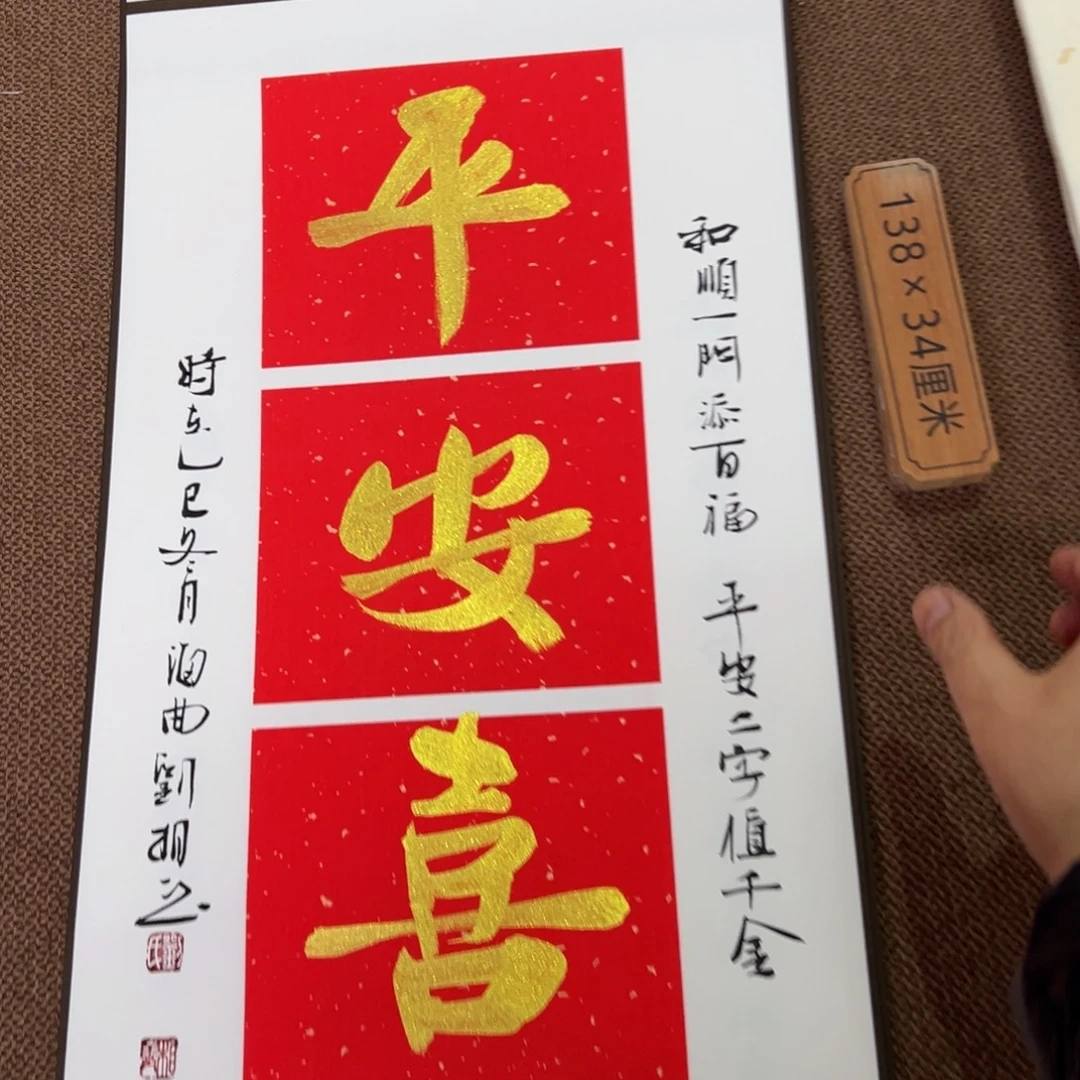 平
安
喜
和順一門添百福 平安二字值千金
時在乙巳冬月海曲劉翔之
138×34厘米